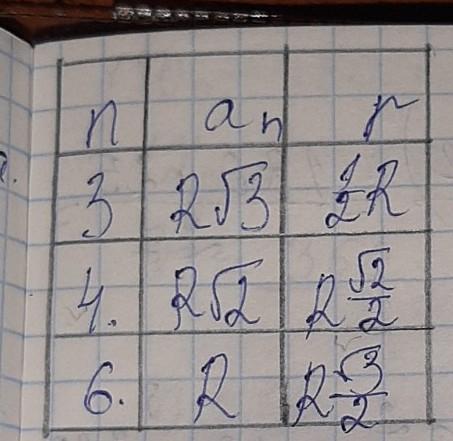 n aₙ r
3 R√3 1/2 R
4. R√2 R √2/2
6. R R √3/2